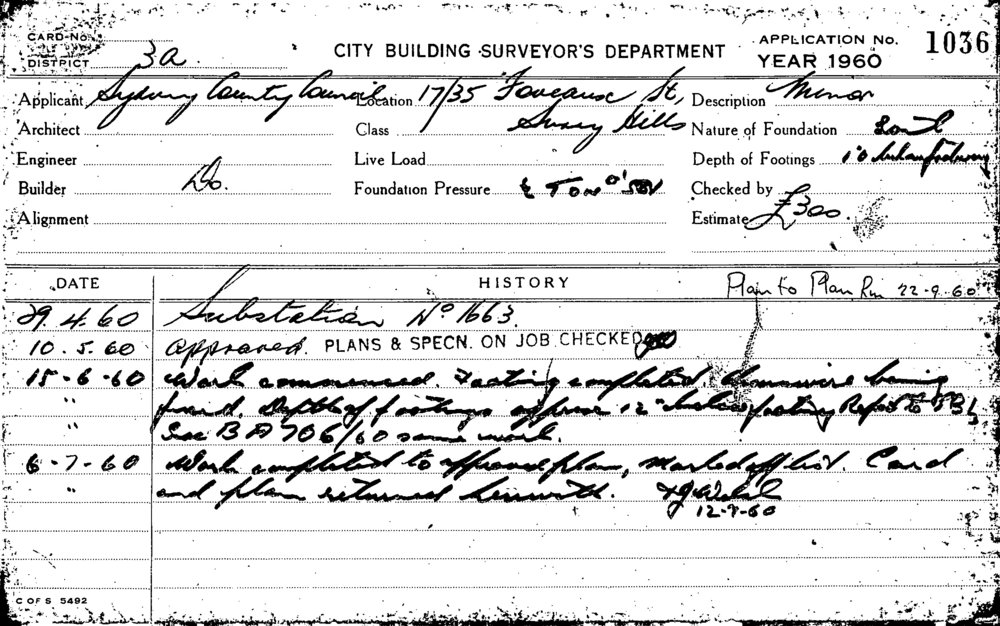 CARD No.
DISTRICT 3a
CITY BUILDING SURVEYOR'S DEPARTMENT
APPLICATION No. 1036
YEAR 1960
Applicant Sydney County Council Location 17/35 Foveaux St, Description Minor
Architect Class Surry Hills Nature of Foundation
Engineer Live Load Depth of Footings 1'0
Builder Do. Foundation Pressure Checked by
Alignment Estimate £300.
DATE HISTORY Plan to Plan Rm 22-9-60
29.4.60 Substation No 1663.
10.5.60 Approved. PLANS & SPECN. ON JOB CHECKED
15-6-60 Work commenced. Footing completed being
" Depth of footings approx 12" footing Report to
See BA 706/60 same work.
6-7-60 Work completed to approved plan, Marked off list. Card
" and plan returned herewith.
12-9-60
C OF S 5492